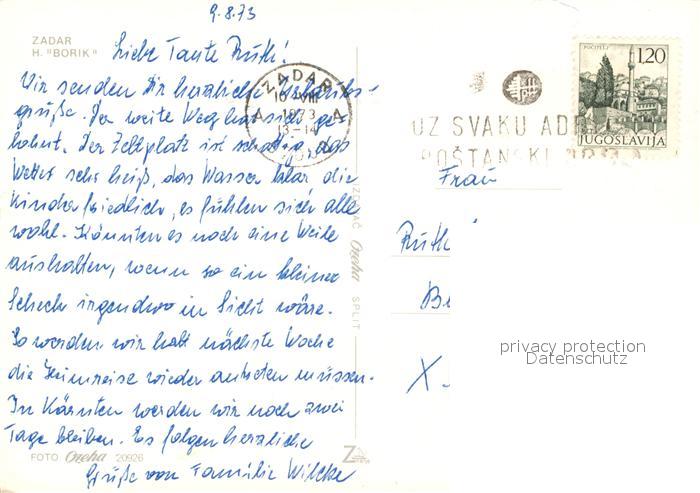 9.8.73
ZADAR
H. "BORIK"
Liebe Tante Ruth!
Wir senden Dir herzliche Urlaubs-
grüße. Der weite Weg hat sich ge-
lohnt. Der Zeltplatz ist schattig, das
Wetter sehr heiß, das Wasser klar, die
Kinder friedlich, es fühlen sich alle
wohl. Könnten es noch eine Weile
aushalten, wenn so ein kleiner
Scheck irgendwo in Sicht wäre.
So werden wir halt nächste Woche
die Heimreise wieder antreten müssen.
In Kärnten werden wir noch zwei
Tage bleiben. Es folgen herzliche
Grüße von Familie
FOTO Oneha 20926
Oneha SPLIT
ZADAR
1973
13-14
UZ SVAKU
POŠTANSKI
POČITELJ
1,20
JUGOSLAVIJA
Frau
Ruth
X.
privacy protection
Datenschutz